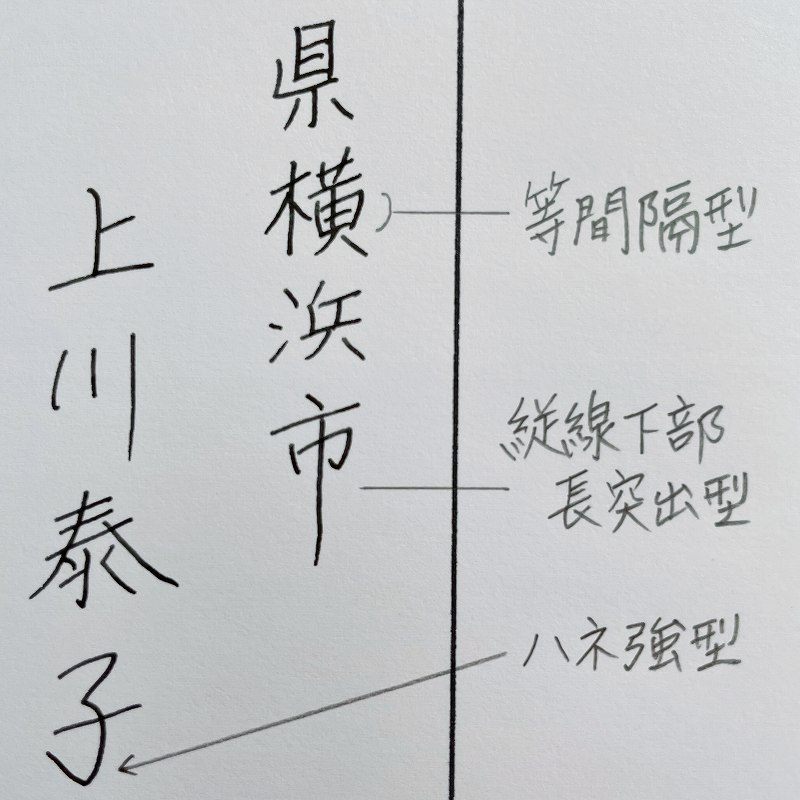 等間隔型
縦線下部
長突出型
ハネ強型
県横浜市
上川泰子